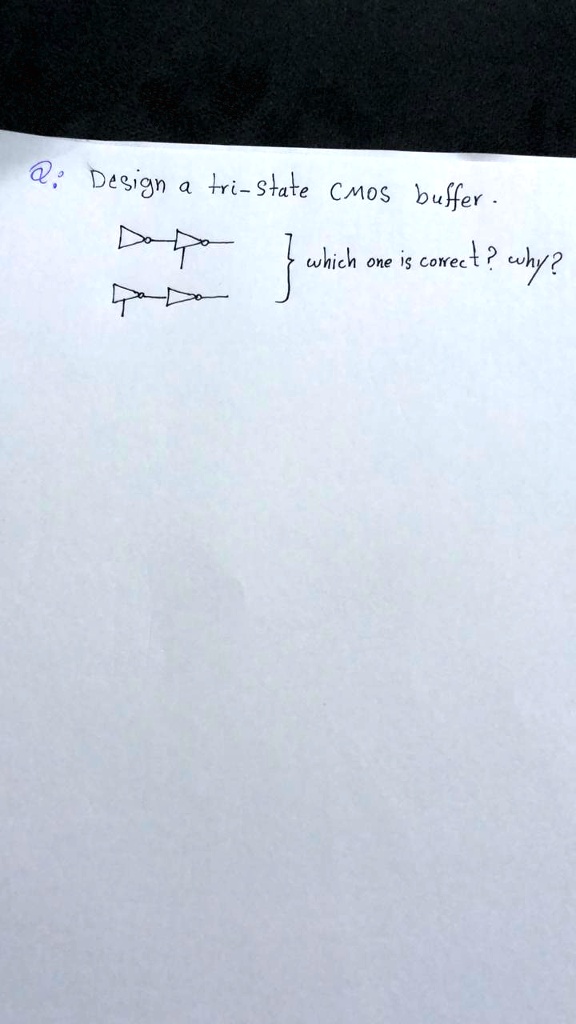 Q: Design a tri-state CMOS buffer.
which one is correct? why?